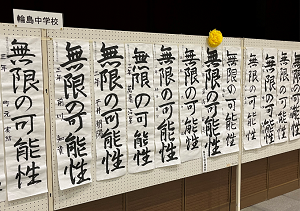 輪島中学校
無限の可能性
無限の可能性
無限の可能性
無限の可能性
無限の可能性
無限の可能性
無限の可能性
無限の可能性
無限の可能性
無限の可能性
無限の可能性